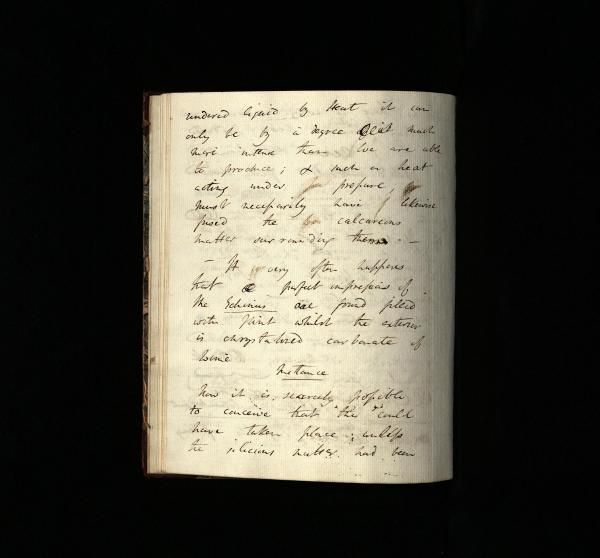 rendered liquid by Heat it can
only be by a degree much
more intense than we are able
to produce; & such a heat
acting under prepure
must neceparily have likewise
fused the calcareous
matter surrounding them. —
— It very often happens
that perfect imprepions of
the Echinus are found filled
with flint whilst the exterior
is chrystalized carbonate of
Lime
Instance
Now it is scarcely pofsible
to conceive that this could
have taken place; unlefs
the silicious matter had been